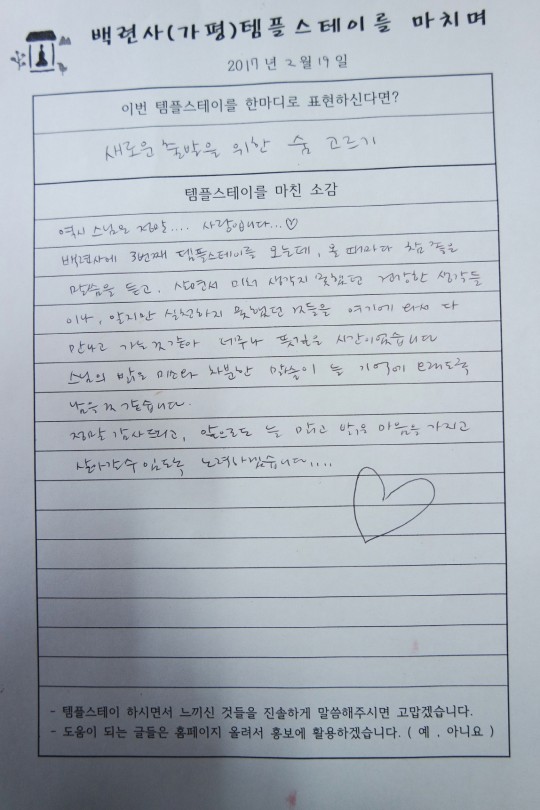 백련사(가평)템플스테이를 마치며
2017년 2월 19일
이번 템플스테이를 한마디로 표현하신다면?
새로운 출발을 위한 숨 고르기
템플스테이를 마친 소감
역시 스님은 정말.... 사랑입니다...♡
백련사에 3번째 템플스테이를 오는데, 올 때마다 참 좋은
말씀을 듣고, 살면서 미처 생각지 못했던 건강한 생각들
이나, 알지만 실천하지 못했던 것들을 여기에 와서 다
만나고 가는 것 같아 너무나 뜻깊은 시간이었습니다
스님의 밝은 미소와 차분한 말씀이 늘 기억에 오래도록
남을 것 같습니다.
정말 감사드리고, 앞으로도 늘 맑고 밝은 마음을 가지고
살아갈 수 있도록 노력하겠습니다....
- 템플스테이 하시면서 느끼신 것들을 진솔하게 말씀해주시면 고맙겠습니다.
- 도움이 되는 글들은 홈페이지 올려서 홍보에 활용하겠습니다. ( 예 , 아니요 )